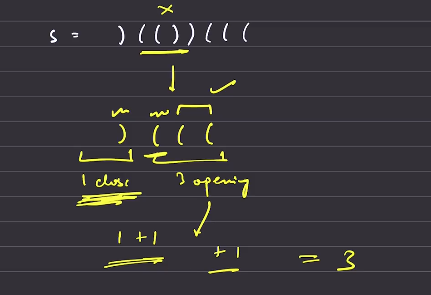 x
s = ) ( ( ) ) ( ( (
) ( ( (
1 close 3 opening
1 + 1 + 1 = 3